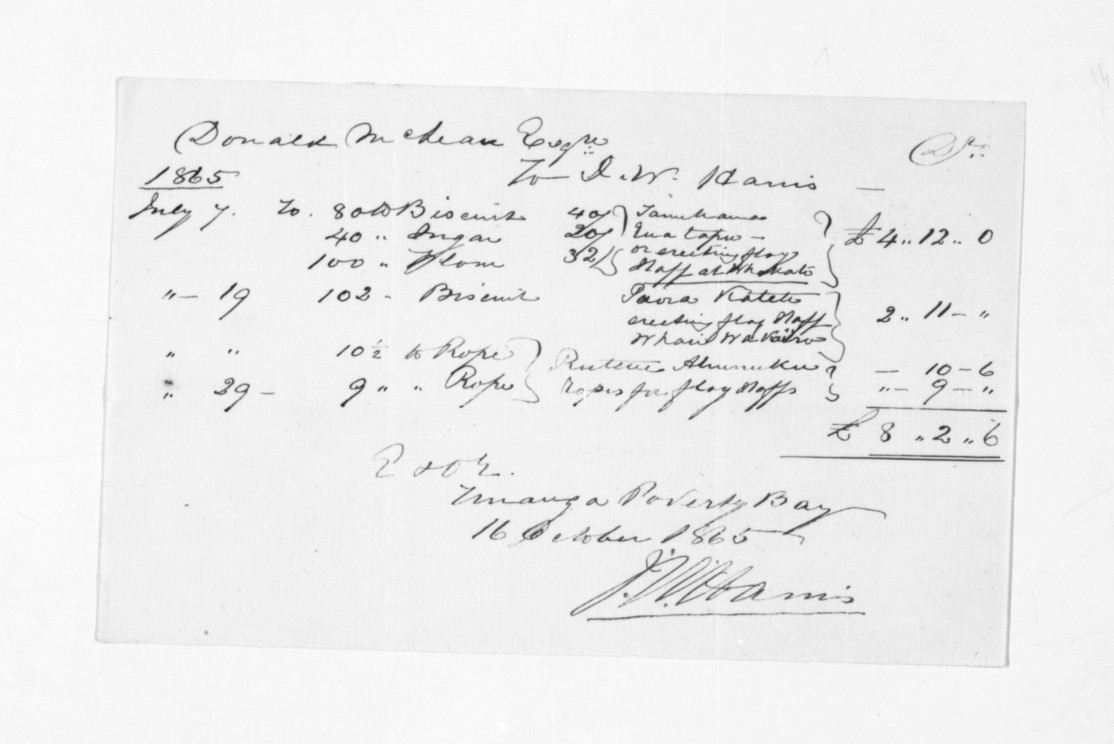 Donald McLean Esqre Dr
1865 To J. W. Harris —
July 7. To. 80 lb Biscuit 40/ Tamihana £ 4 " 12 " 0
40 " Sugar 20/
100 " Flour 32/ or erecting flag
Staff at
" — 19 102 " Biscuit erecting flag Staff 2 " 11 — "
" " 10½ lb Rope — 10 — 6
" 29 — 9 " " Rope Ropes for flag Staffs " — 9 — "
£ 8 " 2 " 6
E & O E.
Turanga Poverty Bay
16 October 1865
J. W. Harris